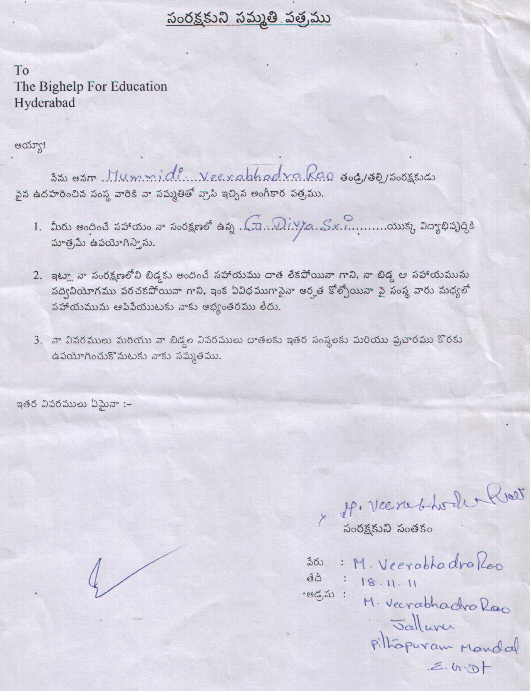 సంరక్షకుని సమ్మతి పత్రము
To
The Bighelp For Education
Hyderabad
అయ్యా!
నేను అనగా ..Mummidi Veerabhadra Rao తండ్రి/తల్లి/సంరక్షకుడు
పైన ఉదహరించిన సంస్థ వారికి నా సమ్మతితో వ్రాసి ఇచ్చిన అంగీకార పత్రము.
1. మీరు అందించే సహాయం నా సంరక్షణలో ఉన్న ..G. Divya Sri.........యొక్క విద్యాభివృద్ధికి
మాత్రమే ఉపయోగిస్తాను.
2. ఇట్లా నా సంరక్షణలోని బిడ్డకు అందించే సహాయము దాత లేకపోయినా గాని, నా బిడ్డ ఆ సహాయమును
సద్వినియోగము పరచకపోయినా గాని, ఇంక ఏవిధముగానైనా అర్హత కోల్పోయినా పై సంస్థ వారు మధ్యలో
సహాయమును ఆపివేయుటకు నాకు అభ్యంతరము లేదు.
3. నా వివరములు మరియు నా బిడ్డల వివరములు దాతలకు ఇతర సంస్థలకు మరియు ప్రచారము కొరకు
ఉపయోగించుకొనుటకు నాకు సమ్మతము.
ఇతర వివరములు ఏమైనా :-
M. Veerabhadra Rao
సంరక్షకుని సంతకం
పేరు : M. Veerabhadra Rao
తేదీ : 18.11.11
అడ్రసు :
M. Veerabhadra Rao
Jalluru
Pithapuram Mandal
E.G.Dt